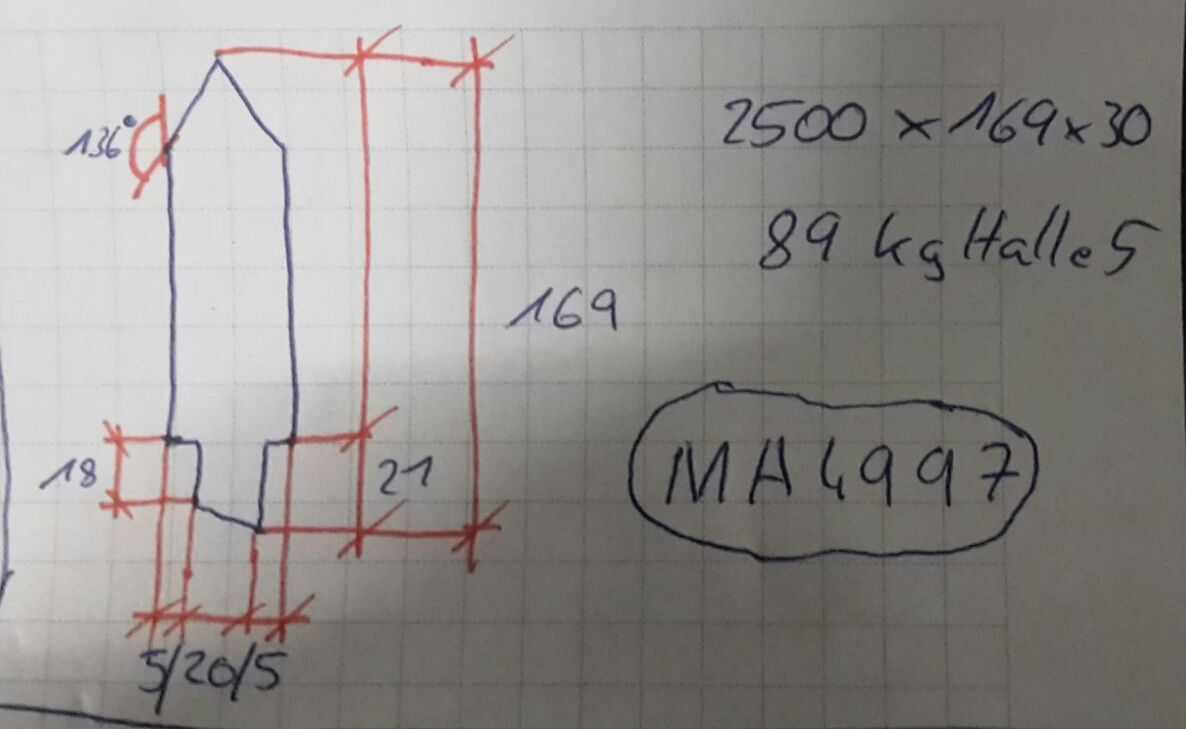 136°
2500 x 169 x 30
89 kg Halle 5
169
18
21
MA4997
5/20/5